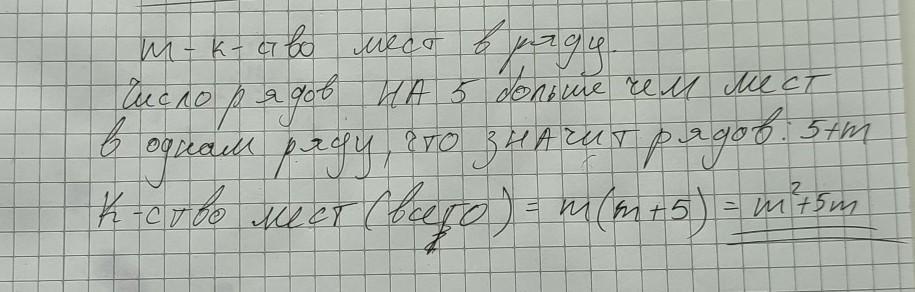 m - к-ство мест в ряду.
Число рядов НА 5 больше чем мест
в одном ряду, что значит рядов: 5+m
К-ство мест (всего) = m(m+5) = m²+5m